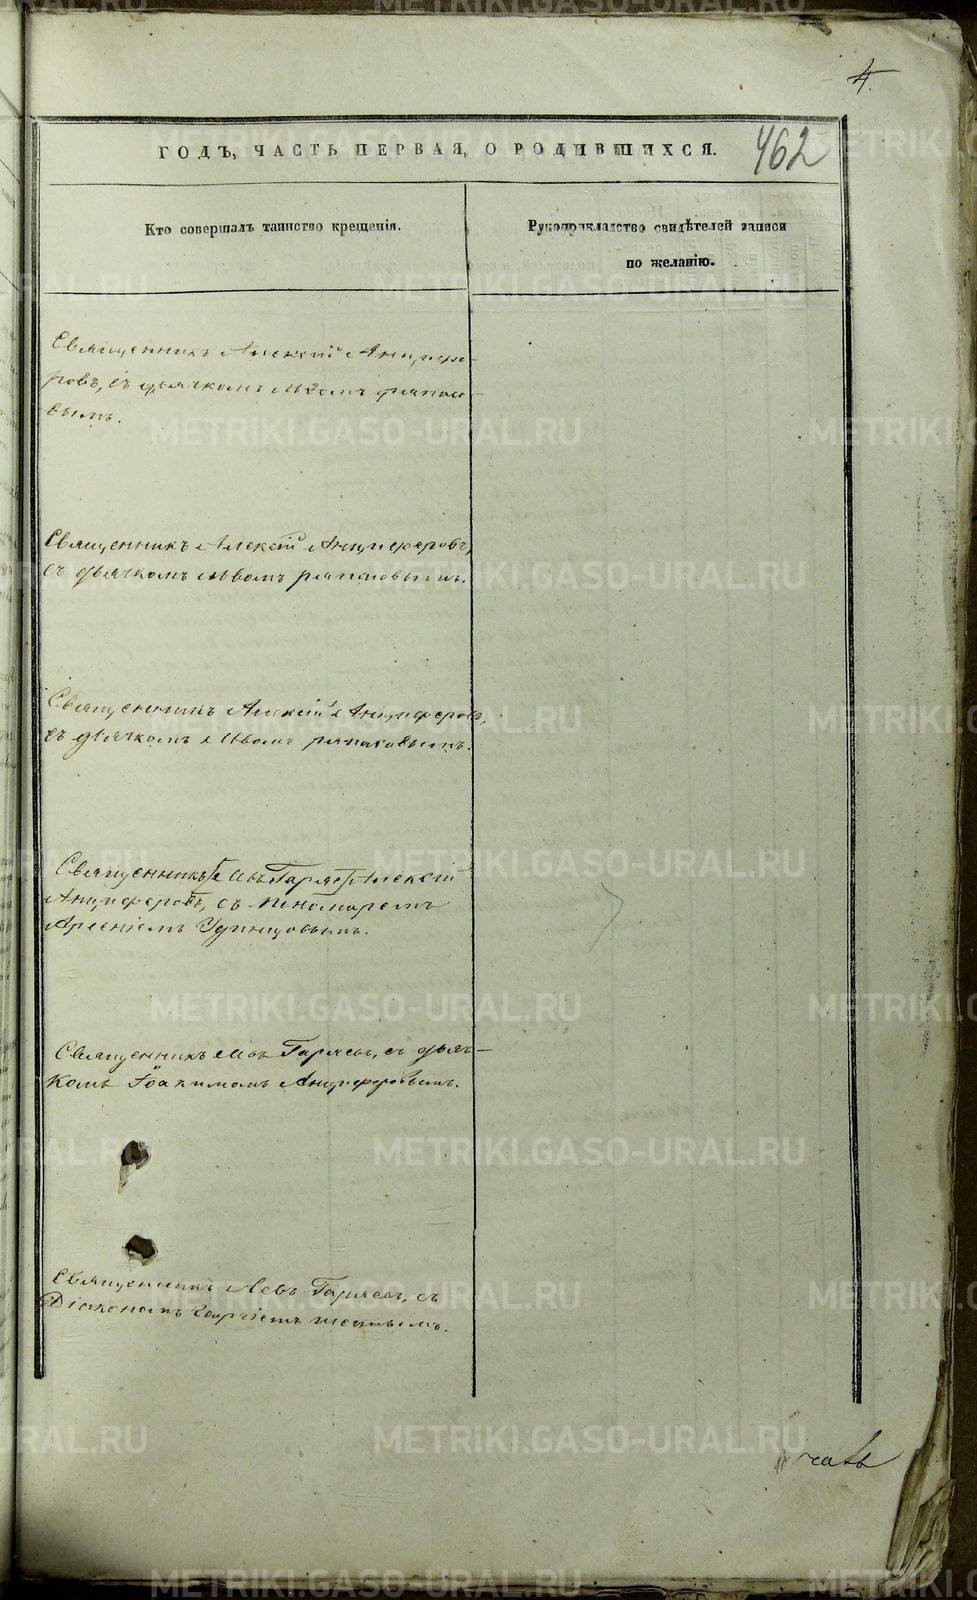 4.
ГОДЪ, ЧАСТЬ ПЕРВАЯ, О РОДИВШИХСЯ.
462
Кто совершалъ таинство крещенія.
Рукоприкладство свидѣтелей записи
по желанію.
Священникъ Алексій Анцифе-
ровъ, съ дьячкомъ Львомъ
вымъ.
Священникъ Алексій Анциферовъ,
съ дьячкомъ Львомъ
Священникъ Алексій Анциферовъ,
съ дьячкомъ Львомъ
Священникъ Алексій
Анциферовъ, съ пономаремъ
Арсеніемъ Удинцовымъ.
Священникъ Левъ Гаряевъ, съ дьяч-
комъ Іоакимомъ Анциферовымъ.
Священникъ Левъ Гаряевъ, съ
Діакономъ
METRIKI.GASO-URAL.RU